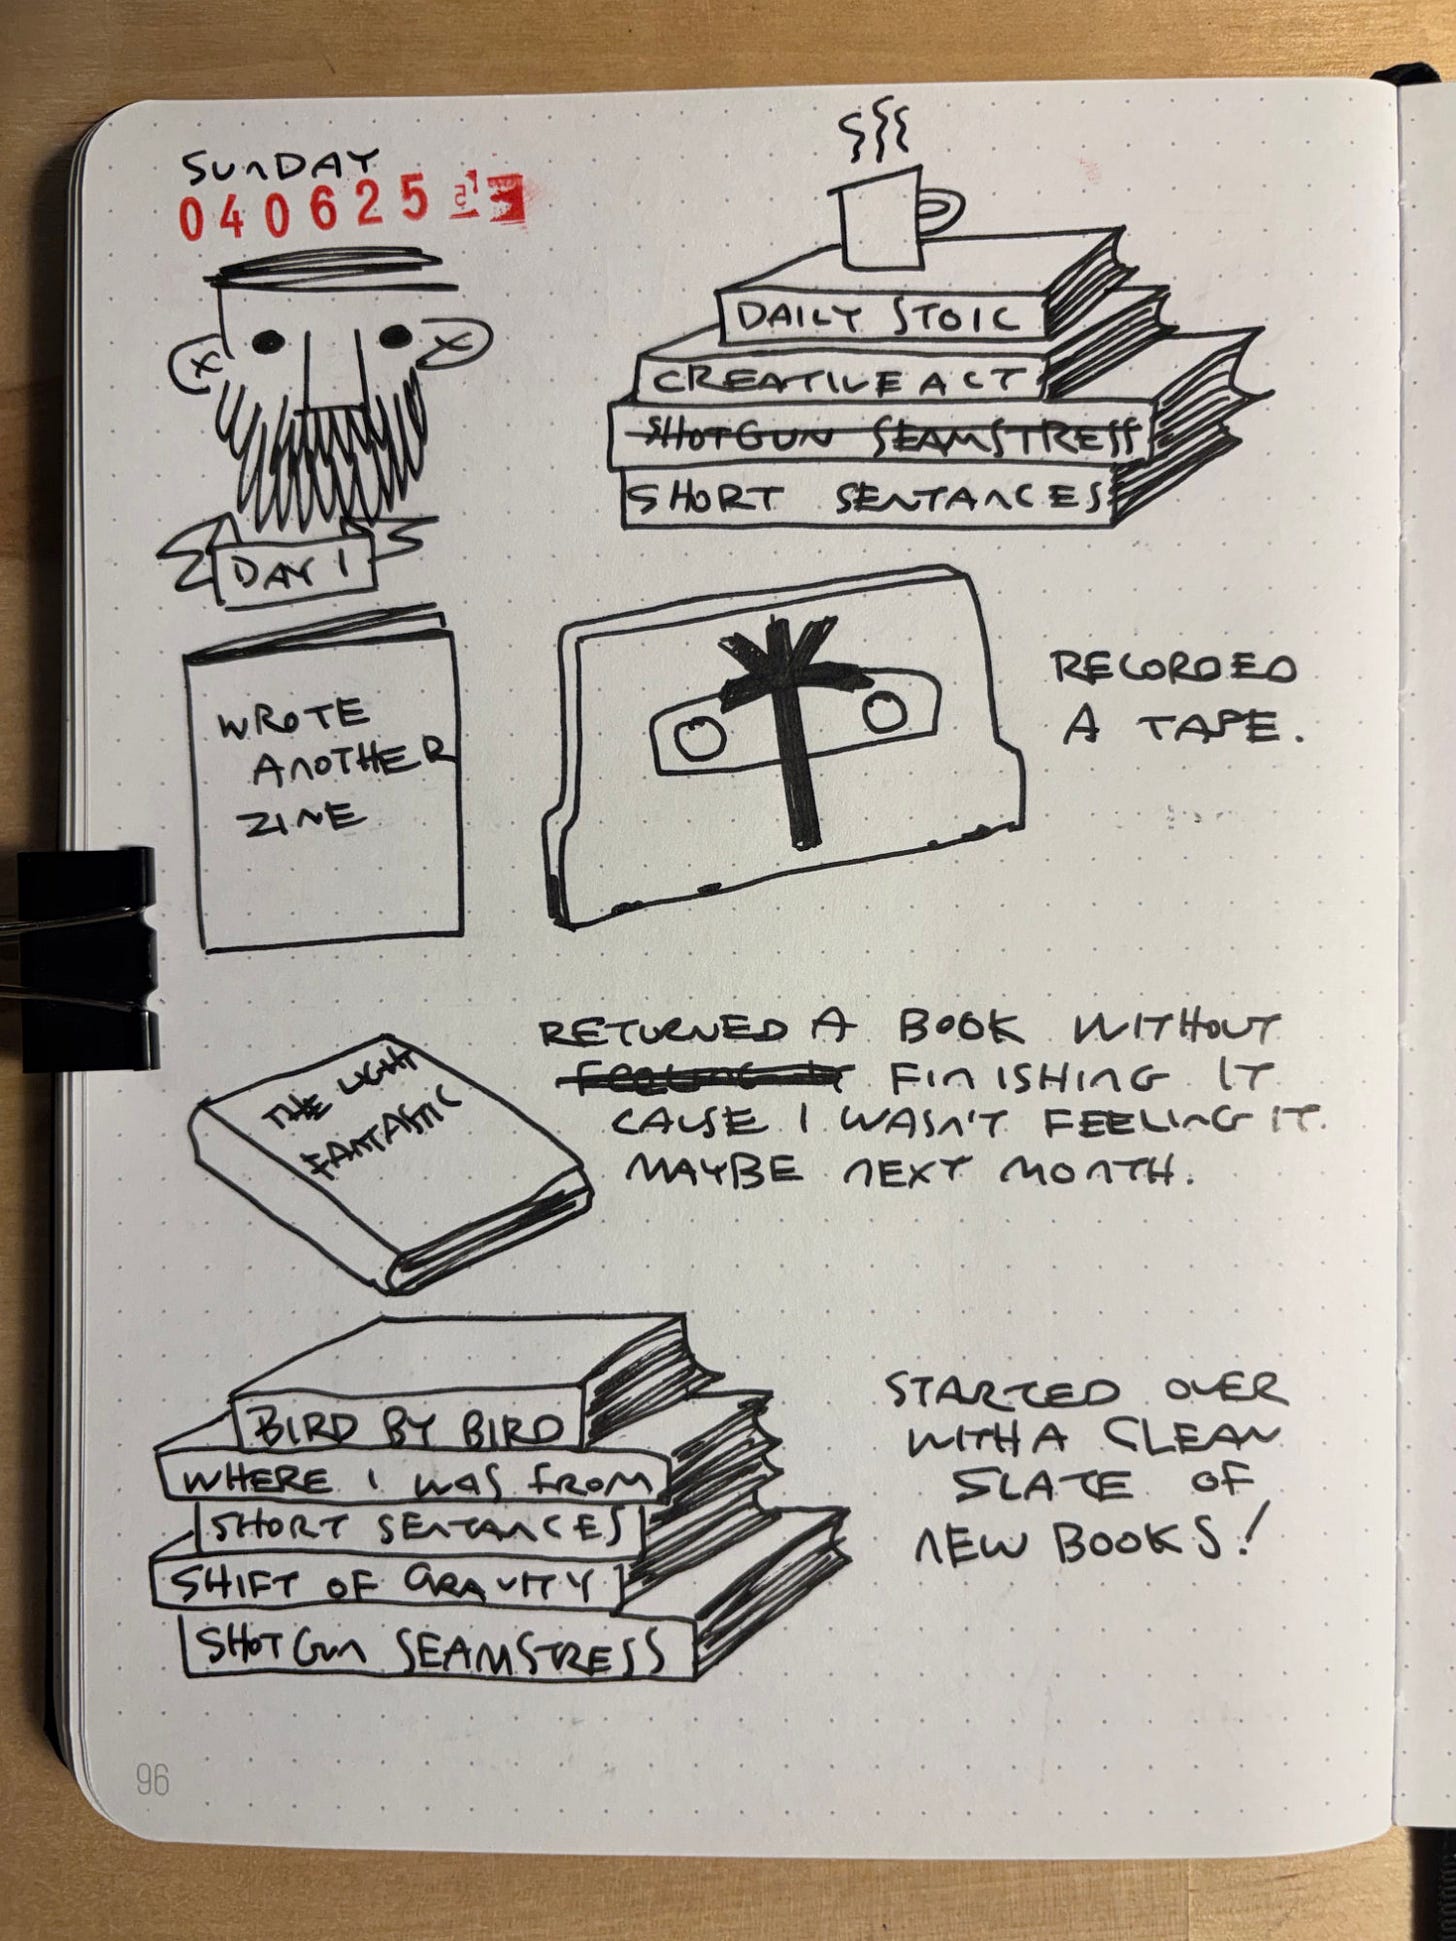 SUNDAY
040625
DAY 1
DAILY STOIC
CREATIVE ACT
SHOTGUN SEAMSTRESS
SHORT SENTANCES
WROTE
ANOTHER
ZINE
RECORDED
A TAPE.
THE LIGHT
FANTASTIC
RETURNED A BOOK WITHOUT
FINISHING IT
CAUSE I WASN'T FEELING IT.
MAYBE NEXT MONTH.
BIRD BY BIRD
WHERE I WAS FROM
SHORT SENTANCES
SHIFT OF GRAVITY
SHOTGUN SEAMSTRESS
STARTED OVER
WITH A CLEAN
SLATE OF
NEW BOOKS!
96